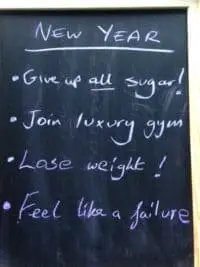 NEW YEAR
• Give up all sugar!
• Join luxury gym
• Lose weight!
• Feel like a failure